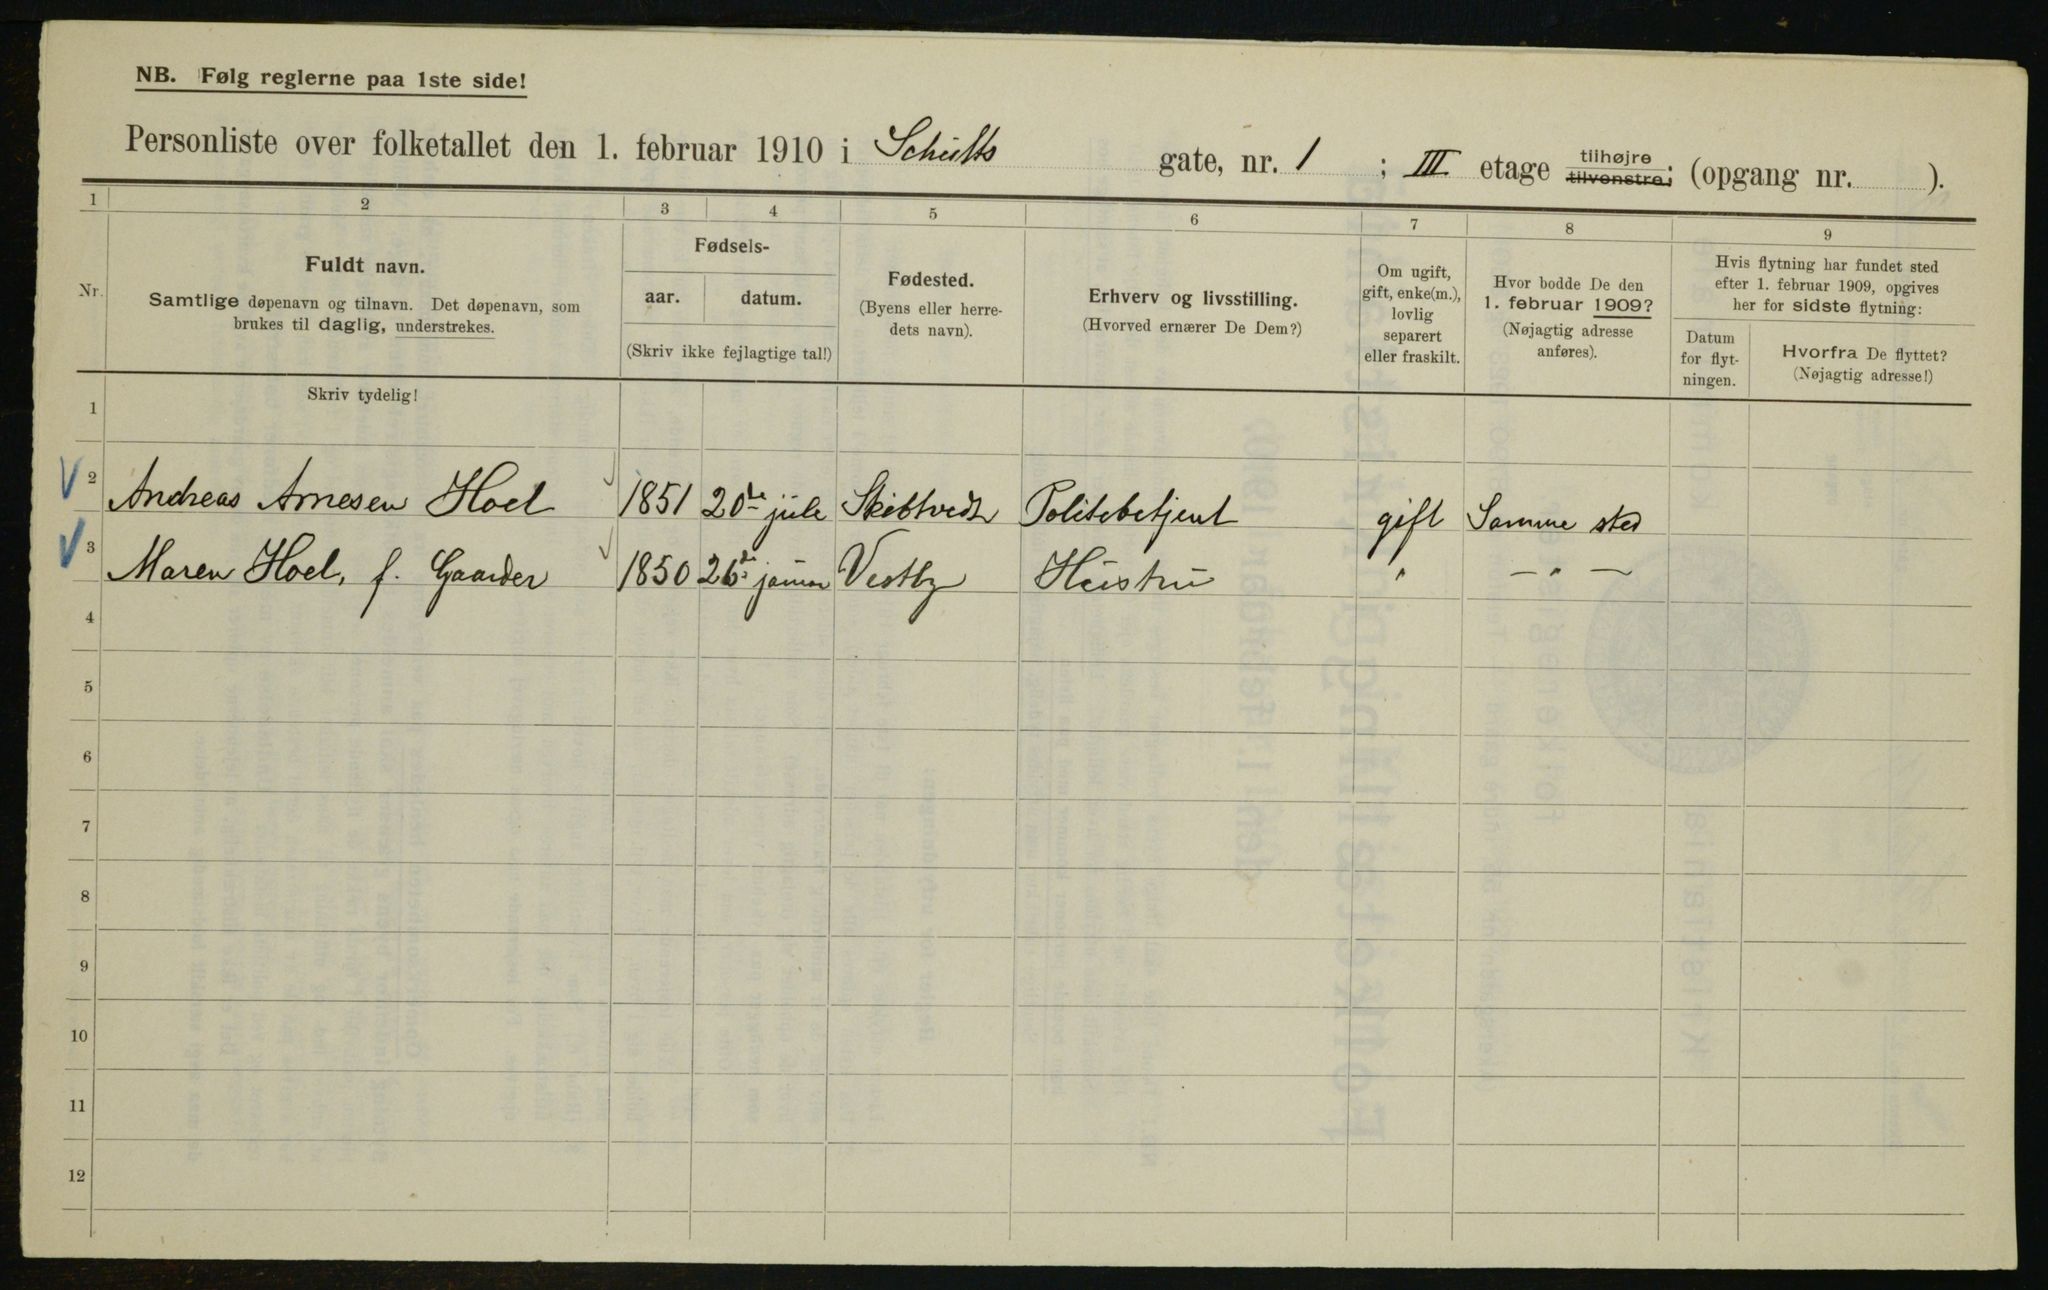 NB. Følg reglerne paa 1ste side!
Personliste over folketallet den 1. februar 1910 i Schults gate, nr. 1 ; III etage tilhøjre tilvenstre; (opgang nr. ).
1 2 3 4 5 6 7 8 9
Nr.
Fuldt navn.
Samtlige døpenavn og tilnavn. Det døpenavn, som
brukes til daglig, understrekes.
Fødsels-
aar. datum.
(Skriv ikke fejlagtige tal!)
Fødested.
(Byens eller herre-
dets navn).
Erhverv og livsstilling.
(Hvorved ernærer De Dem?)
Om ugift,
gift, enke(m.),
lovlig
separert
eller fraskilt.
Hvor bodde De den
1. februar 1909?
(Nøjagtig adresse
anføres).
Hvis flytning har fundet sted
efter 1. februar 1909, opgives
her for sidste flytning:
Datum
for flyt-
ningen.
Hvorfra De flyttet?
(Nøjagtig adresse!)
Skriv tydelig!
1
2 Andreas Arnesen Hoel 1851 20de jule Skibtvedt Politebetjent gift Samme sted
3 Maren Hoel, f. Gaarder 1850 26de januar Vestby Hustru " — " —
4
5
6
7
8
9
10
11
12